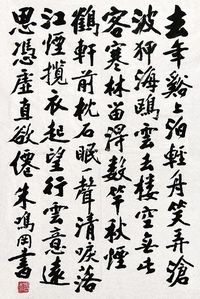 去年谿上泊輕舟笑弄滄
波狎海鷗雲去樓空無此
客寒林留得數竿秋煙
鶴軒前枕石眠一聲清唳落
江煙攬衣起望行雲意遠
思憑虛直欲僊 朱鳴岡書